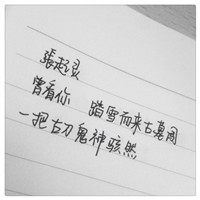 張起灵
曾看你 踏雪而来古嘉阁
一把古刀鬼神骇然